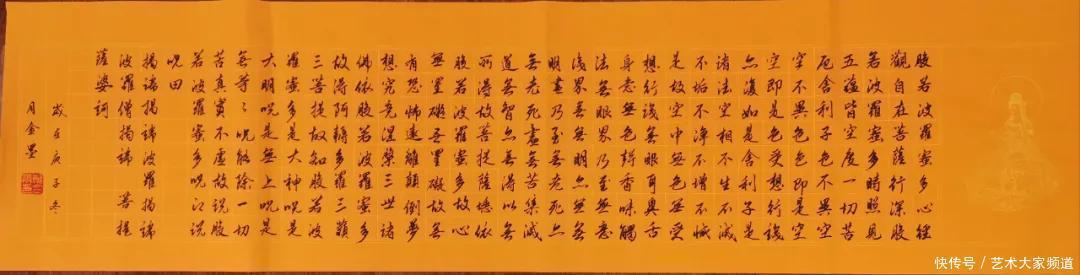 般若波羅蜜多心經
觀自在菩薩行深般
若波羅蜜多時照見
五蘊皆空度一切苦
厄舍利子色不異空
空不異色色即是空
空即是色受想行識
亦復如是舍利子是
諸法空相不生不滅
不垢不淨不增不減
是故空中無色無受
想行識無眼耳鼻舌
身意無色聲香味觸
法無眼界乃至無意
識界無無明亦無無
明盡乃至無老死亦
無老死盡無苦集滅
道無智亦無得以無
所得故菩提薩埵依
般若波羅蜜多故心
無罣礙無罣礙故無
有恐怖遠離顛倒夢
想究竟涅槃三世諸
佛依般若波羅蜜多
故得阿耨多羅三藐
三菩提故知般若波
羅蜜多是大神咒是
大明咒是無上咒是
無等々咒能除一切
苦真實不虛故說般
若波羅蜜多咒即說
咒曰
揭諦揭諦波羅揭諦
波羅僧揭諦 菩提
薩婆訶
歲在庚子冬
月金墨
快传号 / 艺术大家频道